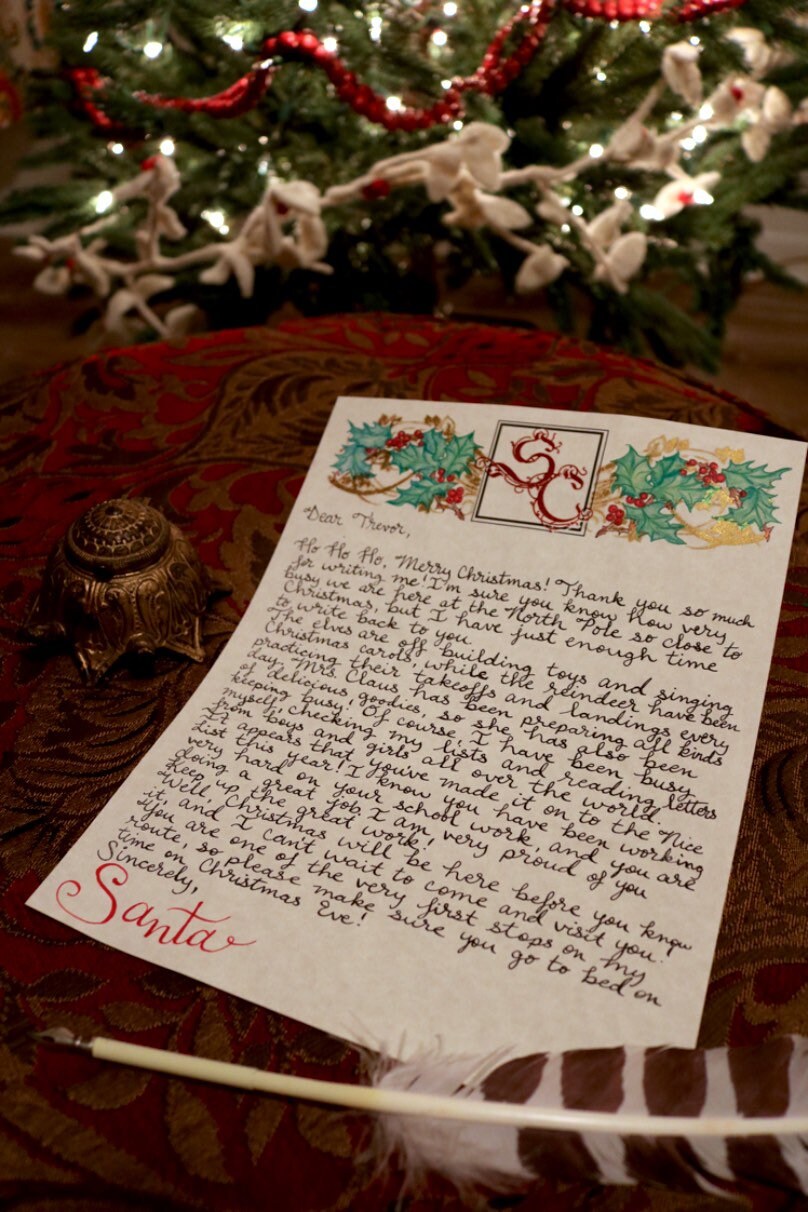 SC
Dear Trevor,
Ho Ho Ho, Merry Christmas! Thank you so much
for writing me! I'm sure you know how very
busy we are here at the North Pole so close to
Christmas, but I have just enough time
to write back to you.
The elves are off building toys and singing
Christmas carols, while the reindeer have been
practicing their takeoffs and landings every
day. Mrs. Claus has been preparing all kinds
of delicious goodies, so she has also been
keeping busy! Of course, I have been busy
myself, checking my lists and reading letters
from boys and girls all over the world.
It appears that you've made it on to the Nice
list this year! I know you have been working
very hard on your school work, and you are
doing a great job. I am very proud of you
Keep up the great work!
Well, Christmas will be here before you know
it, and I can't wait to come and visit you.
You are one of the very first stops on my
route, so please make sure you go to bed on
time on Christmas Eve!
Sincerely,
Santa